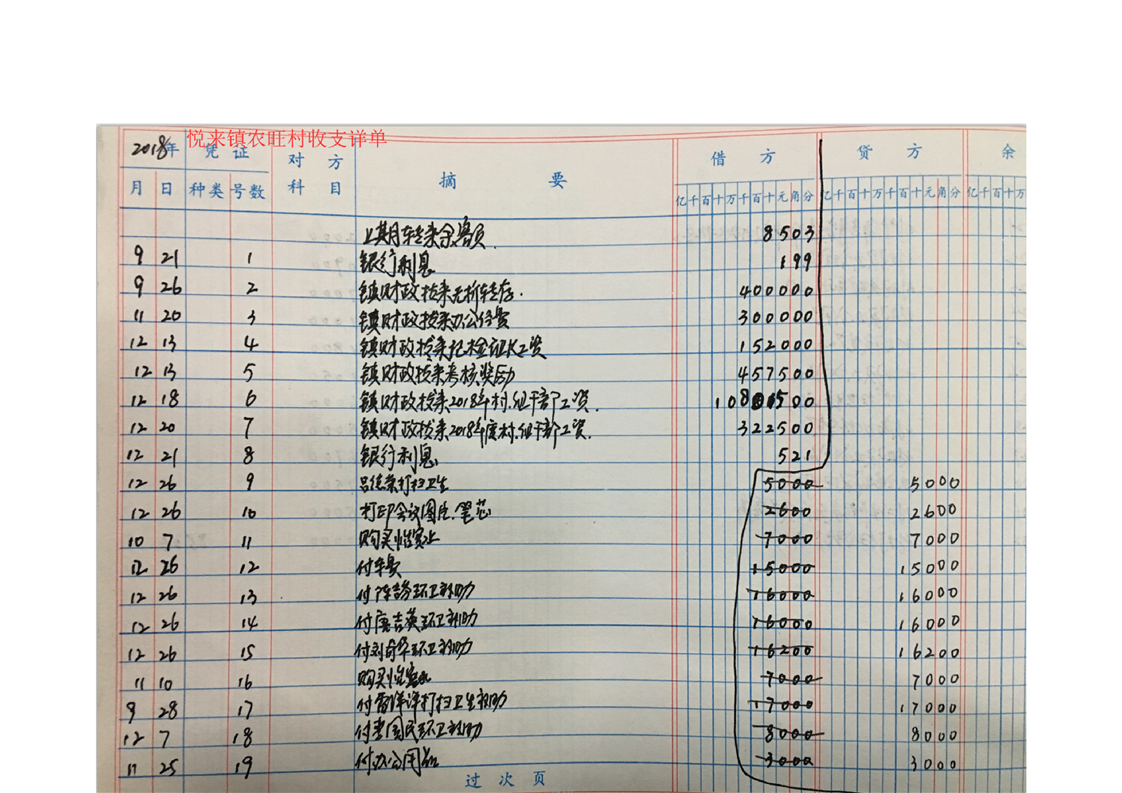 悦来镇农旺村收支详单
2018年 凭证 对方科目 摘要 借方 贷方 余
月 日 种类 号数 亿千百十万千百十元角分 亿千百十万千百十元角分 亿千百十万
上期转来余额 8503
9 21 1 银行利息 199
9 26 2 镇财政拨来 转存. 400000
11 20 3 镇财政拨来办公经费 300000
12 13 4 镇财政拨来 工资 152000
12 13 5 镇财政拨来考核奖励 457500
12 18 6 镇财政拨来2018年村.组干部工资. 00
12 20 7 镇财政拨来2018年度村.组干部工资. 322500
12 21 8 银行利息 521
12 26 9 打扫卫生 5000 5000
12 26 10 打印会议图片.笔芯 2600 2600
10 7 11 购买 7000 7000
12 26 12 付车费 15000 15000
12 26 13 付 环卫补助 16000 16000
12 26 14 付唐吉英环卫补助 16000 16000
12 26 15 付刘 华环卫补助 16200 16200
11 10 16 购买 7000 7000
9 28 17 付 打扫卫生补助 17000 17000
12 7 18 付 国民环卫补助 8000 8000
11 25 19 付办公用品 3000 3000
过次页